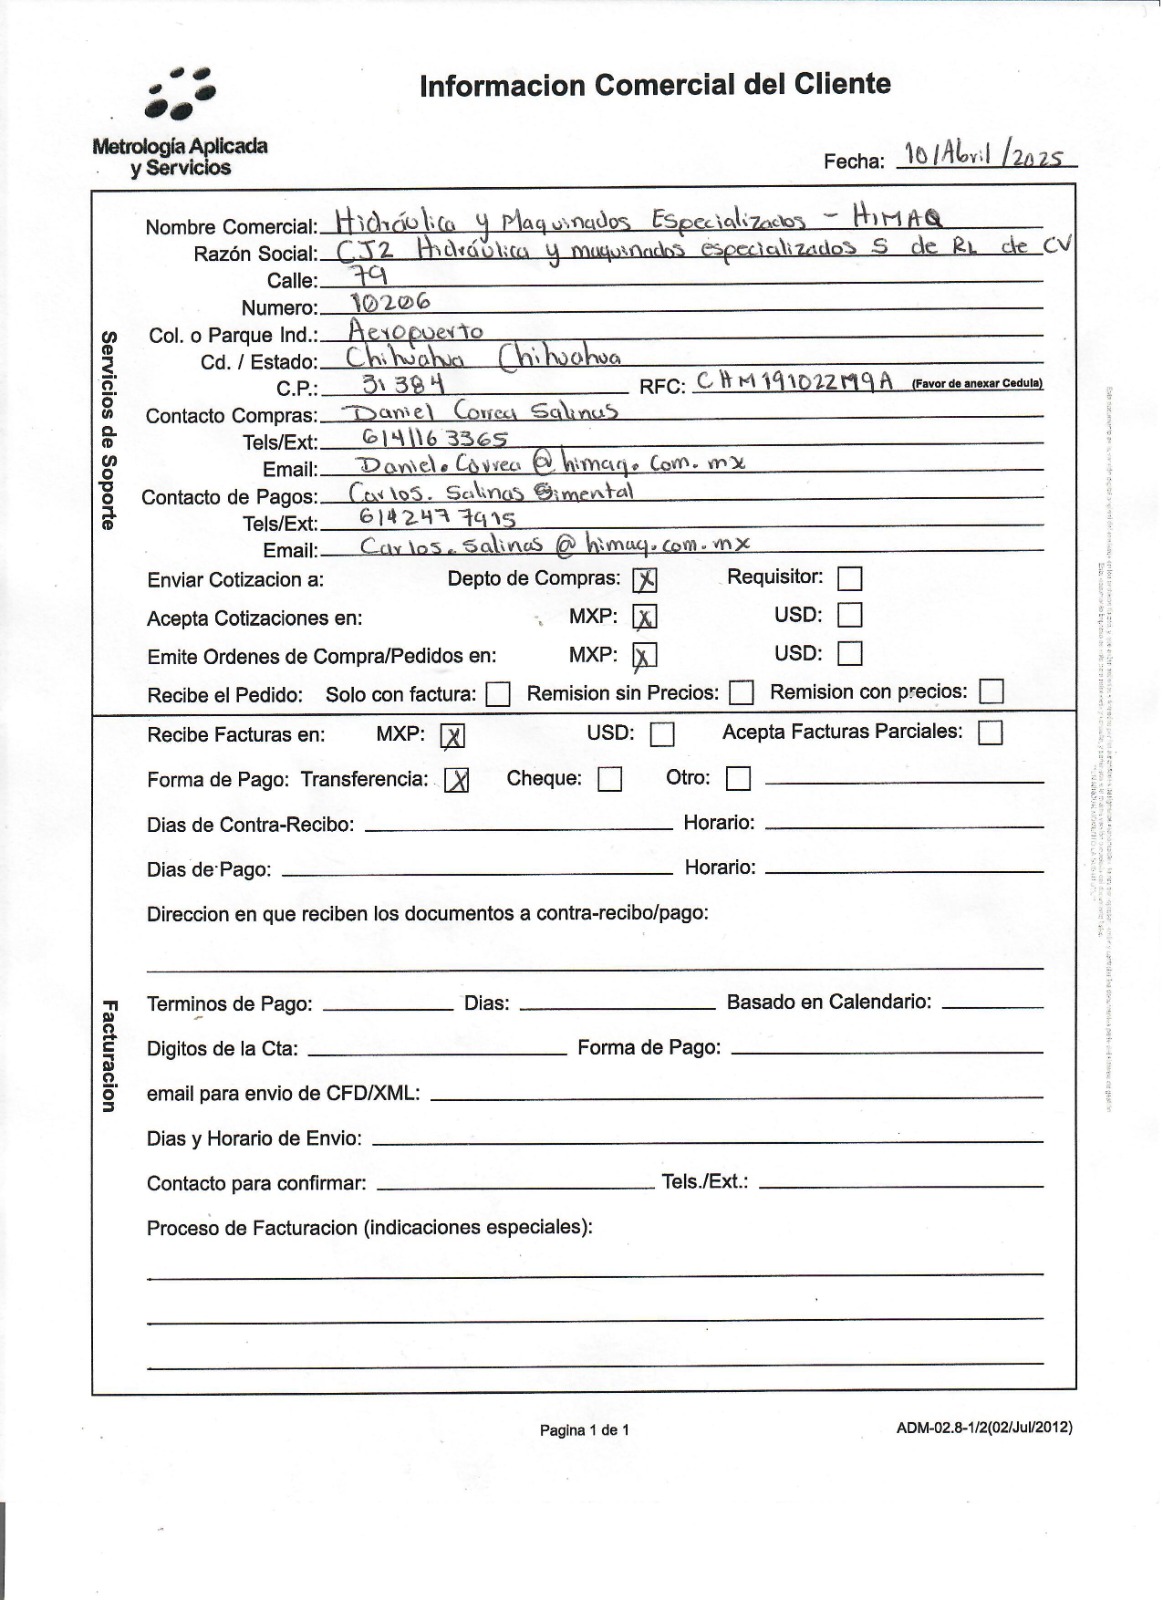 Informacion Comercial del Cliente
Metrología Aplicada
y Servicios
Fecha: 10/Abril/2025
Servicios de Soporte
Nombre Comercial: Hidráulica y Maquinados Especializados - HIMAQ
Razón Social: CJ2 Hidráulica y maquinados especializados S de RL de CV
Calle: 79
Numero: 10206
Col. o Parque Ind.: Aeropuerto
Cd. / Estado: Chihuahua Chihuahua
C.P.: 31384 RFC: CHM191022M9A (Favor de anexar Cedula)
Contacto Compras: Daniel Correa Salinas
Tels/Ext: 6141163365
Email: Daniel.Correa@himaq.com.mx
Contacto de Pagos: Carlos. Salinas Pimental
Tels/Ext: 614 247 7915
Email: Carlos.Salinas@himaq.com.mx
Enviar Cotizacion a: Depto de Compras: X Requisitor:
Acepta Cotizaciones en: MXP: X USD:
Emite Ordenes de Compra/Pedidos en: MXP: X USD:
Recibe el Pedido: Solo con factura: Remision sin Precios: Remision con precios:
Facturacion
Recibe Facturas en: MXP: X USD: Acepta Facturas Parciales:
Forma de Pago: Transferencia: X Cheque: Otro:
Dias de Contra-Recibo: Horario:
Dias de Pago: Horario:
Direccion en que reciben los documentos a contra-recibo/pago:
Terminos de Pago: Dias: Basado en Calendario:
Digitos de la Cta: Forma de Pago:
email para envio de CFD/XML:
Dias y Horario de Envio:
Contacto para confirmar: Tels./Ext.:
Proceso de Facturacion (indicaciones especiales):
Pagina 1 de 1
ADM-02.8-1/2(02/Jul/2012)